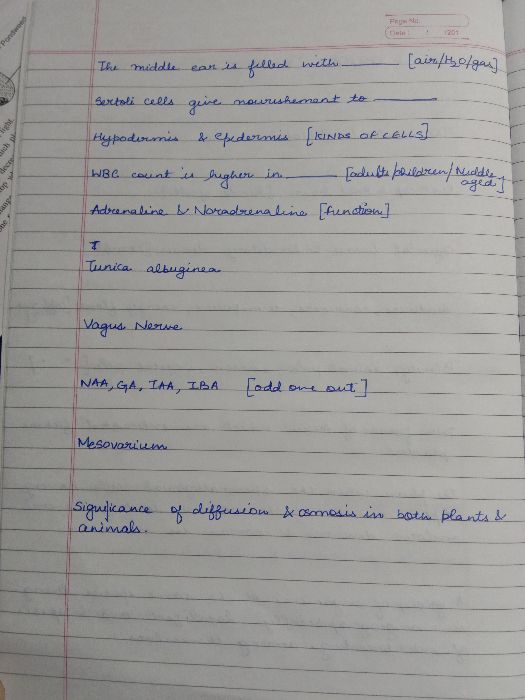 Pondweed
Page No.
Date: / /201
The middle ear is filled with ______ [air/H2O/gas]
Sertoli cells give nourishement to ______
Hypodermis & Epidermis [KINDS OF CELLS]
WBC count is higher in ______ [adults/children/Middle
aged]
Adrenaline & Noradrenaline [function]
T
Tunica albuginea
Vagus Nerve
NAA, GA, IAA, IBA [odd one out]
Mesovarium
Significance of diffusion & osmosis in both plants &
animals.